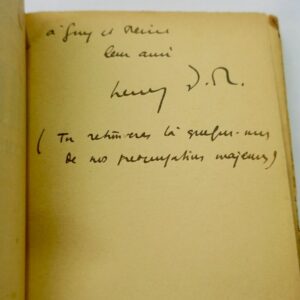 à Guy et
leur ami
Henry D. R.
( Tu retrouveras là quelques-unes
de nos préoccupations majeures)